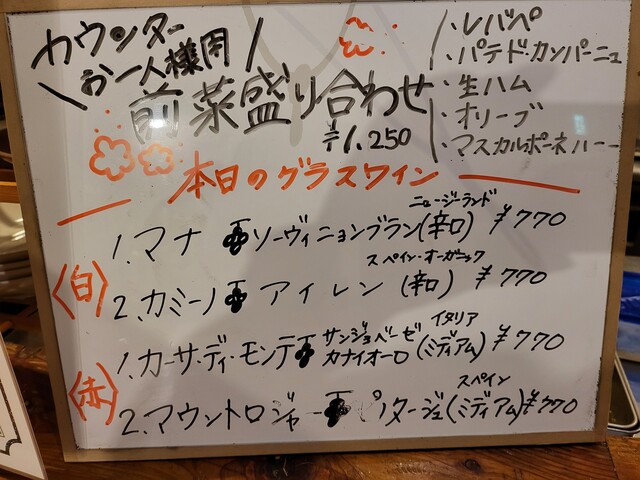 カウンター
お一人様用
前菜盛り合わせ
¥1,250
・レバペ
・パテド・カンパーニュ
・生ハム
・オリーブ
・マスカルポーネハニー
本日のグラスワイン
〈白〉
ニュージーランド
1. マナ ソーヴィニョンブラン(辛口) ¥770
スペイン・オーガニック
2. カミーノ アイレン (辛口) ¥770
〈赤〉
イタリア
1. カーサ・ディ・モンテ サンジョベーゼ カナイオーロ (ミディアム) ¥770
スペイン
2. マウントロジャー ピノタージュ(ミディアム) ¥770